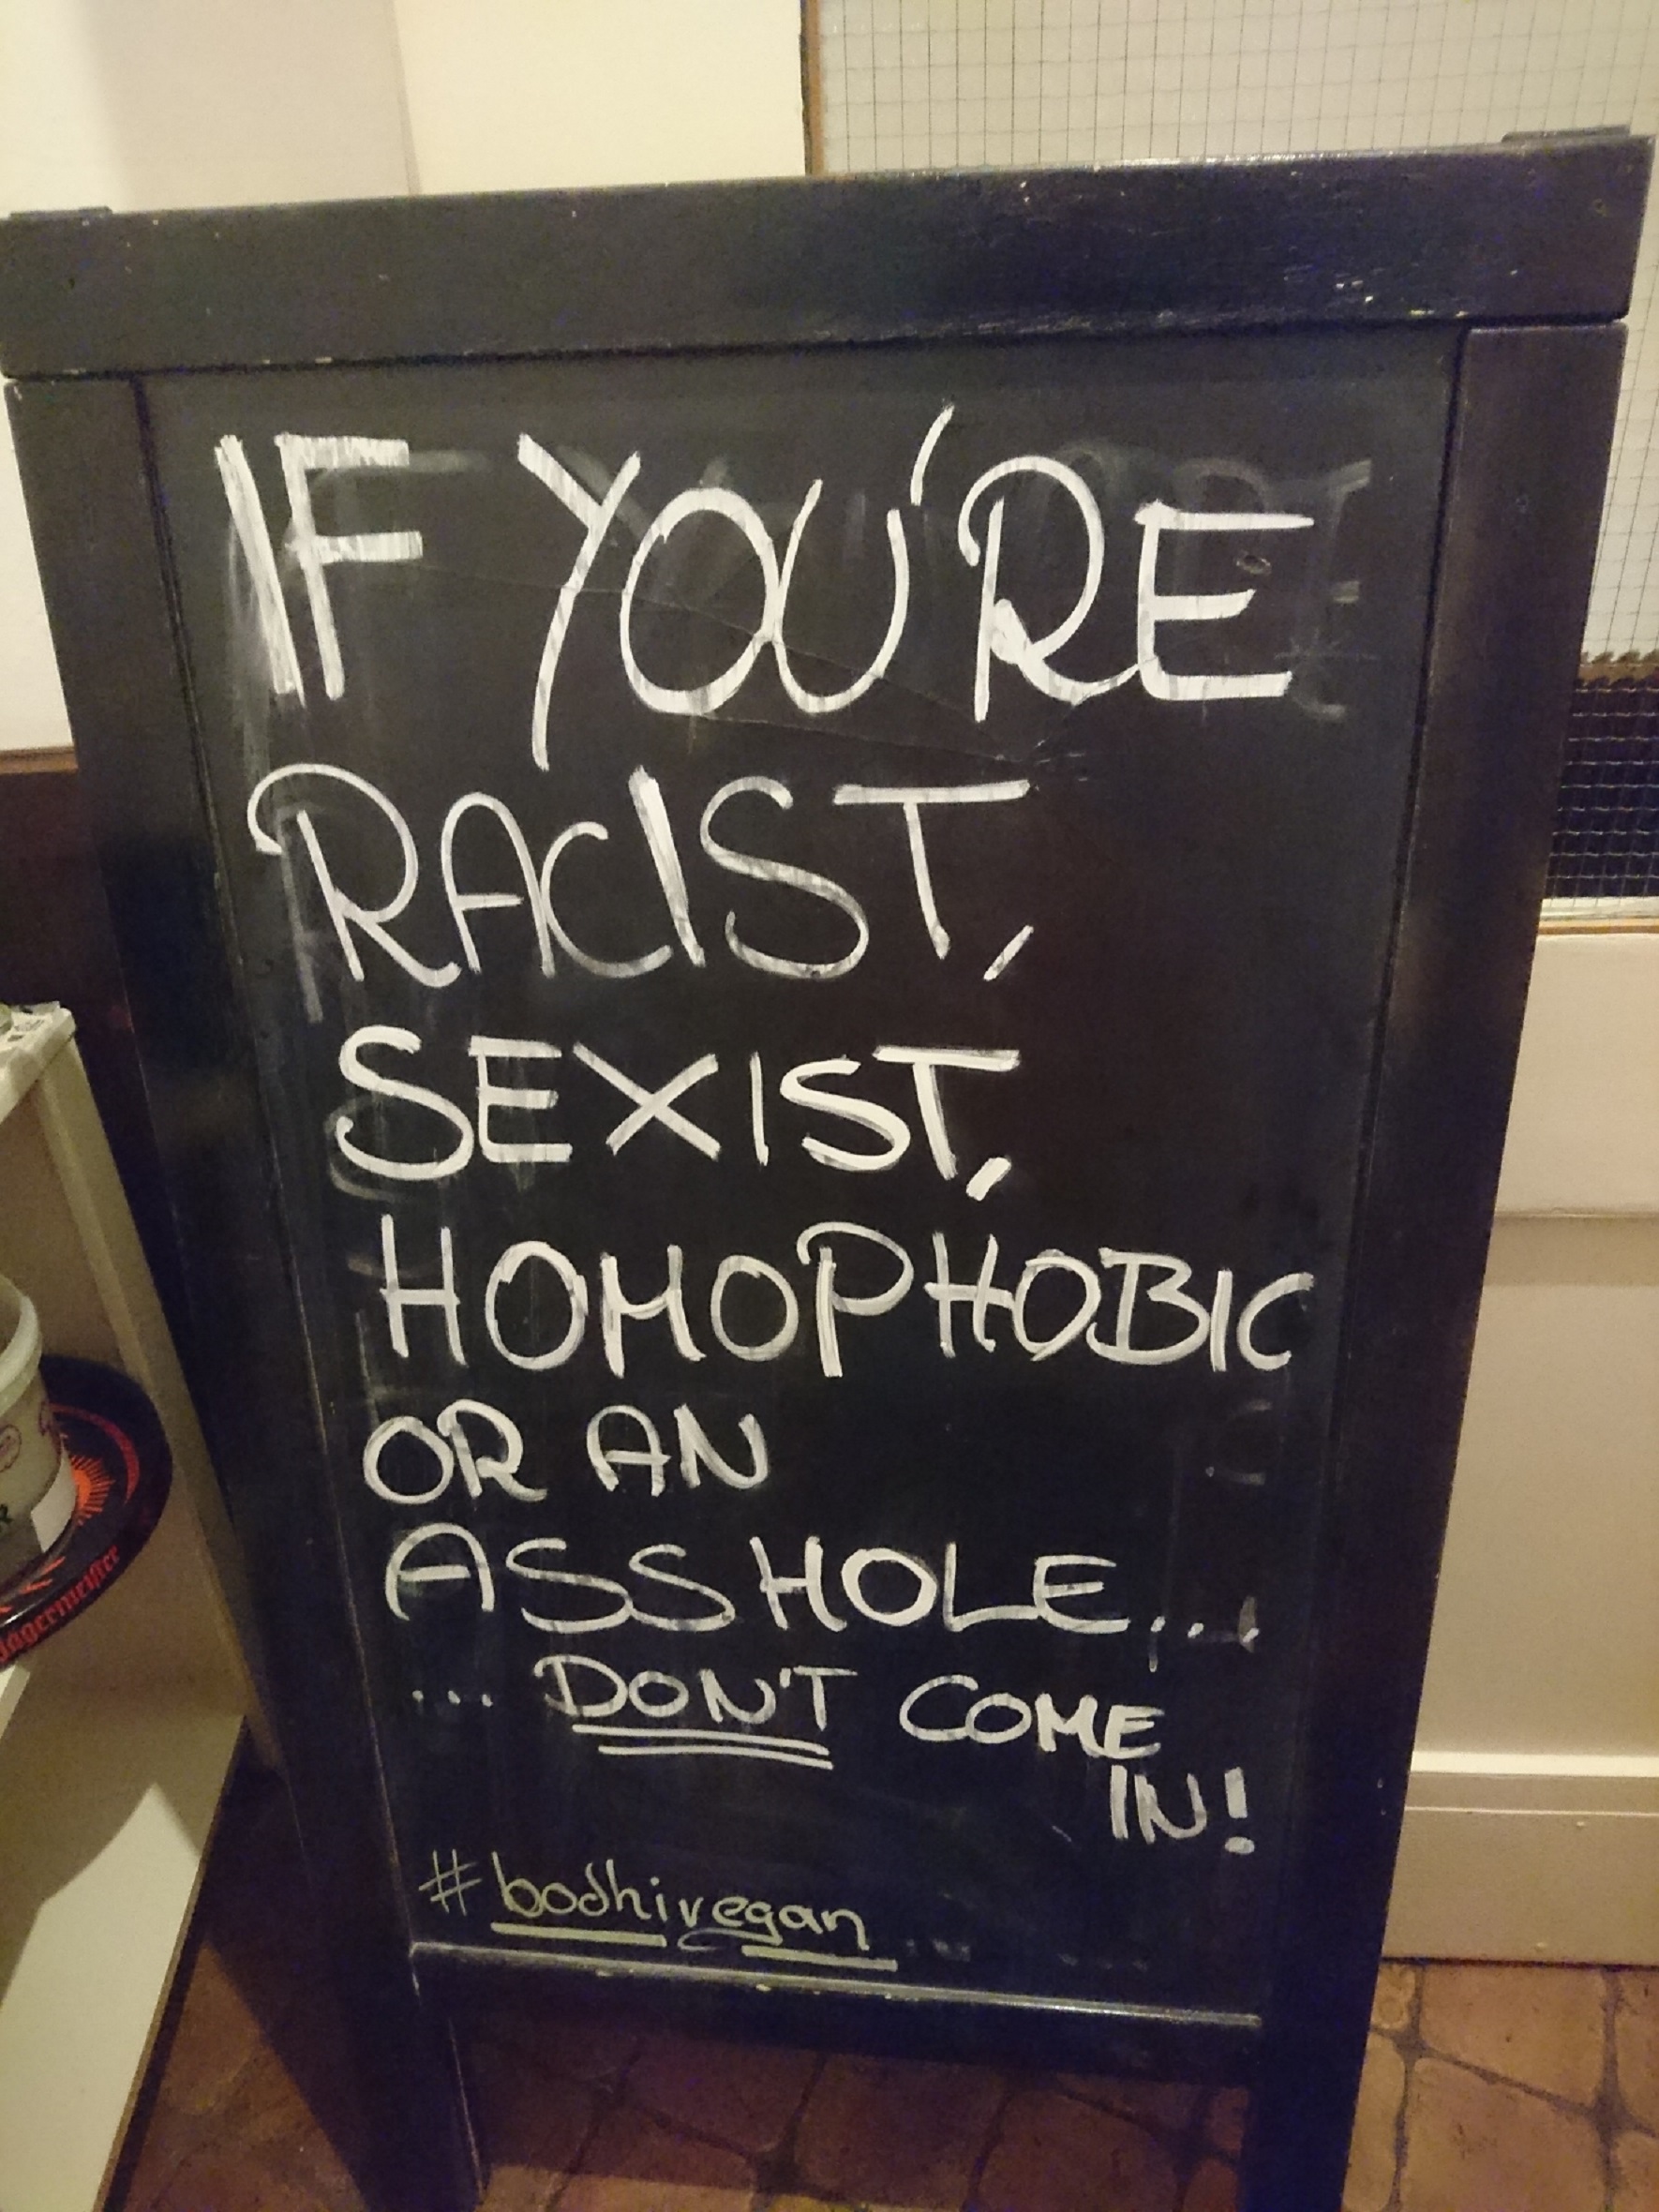 IF YOU'RE
RACIST,
SEXIST,
HOMOPHOBIC
OR AN
ASSHOLE...
... DONT COME
IN!
#bodhivegan
Jägermeister